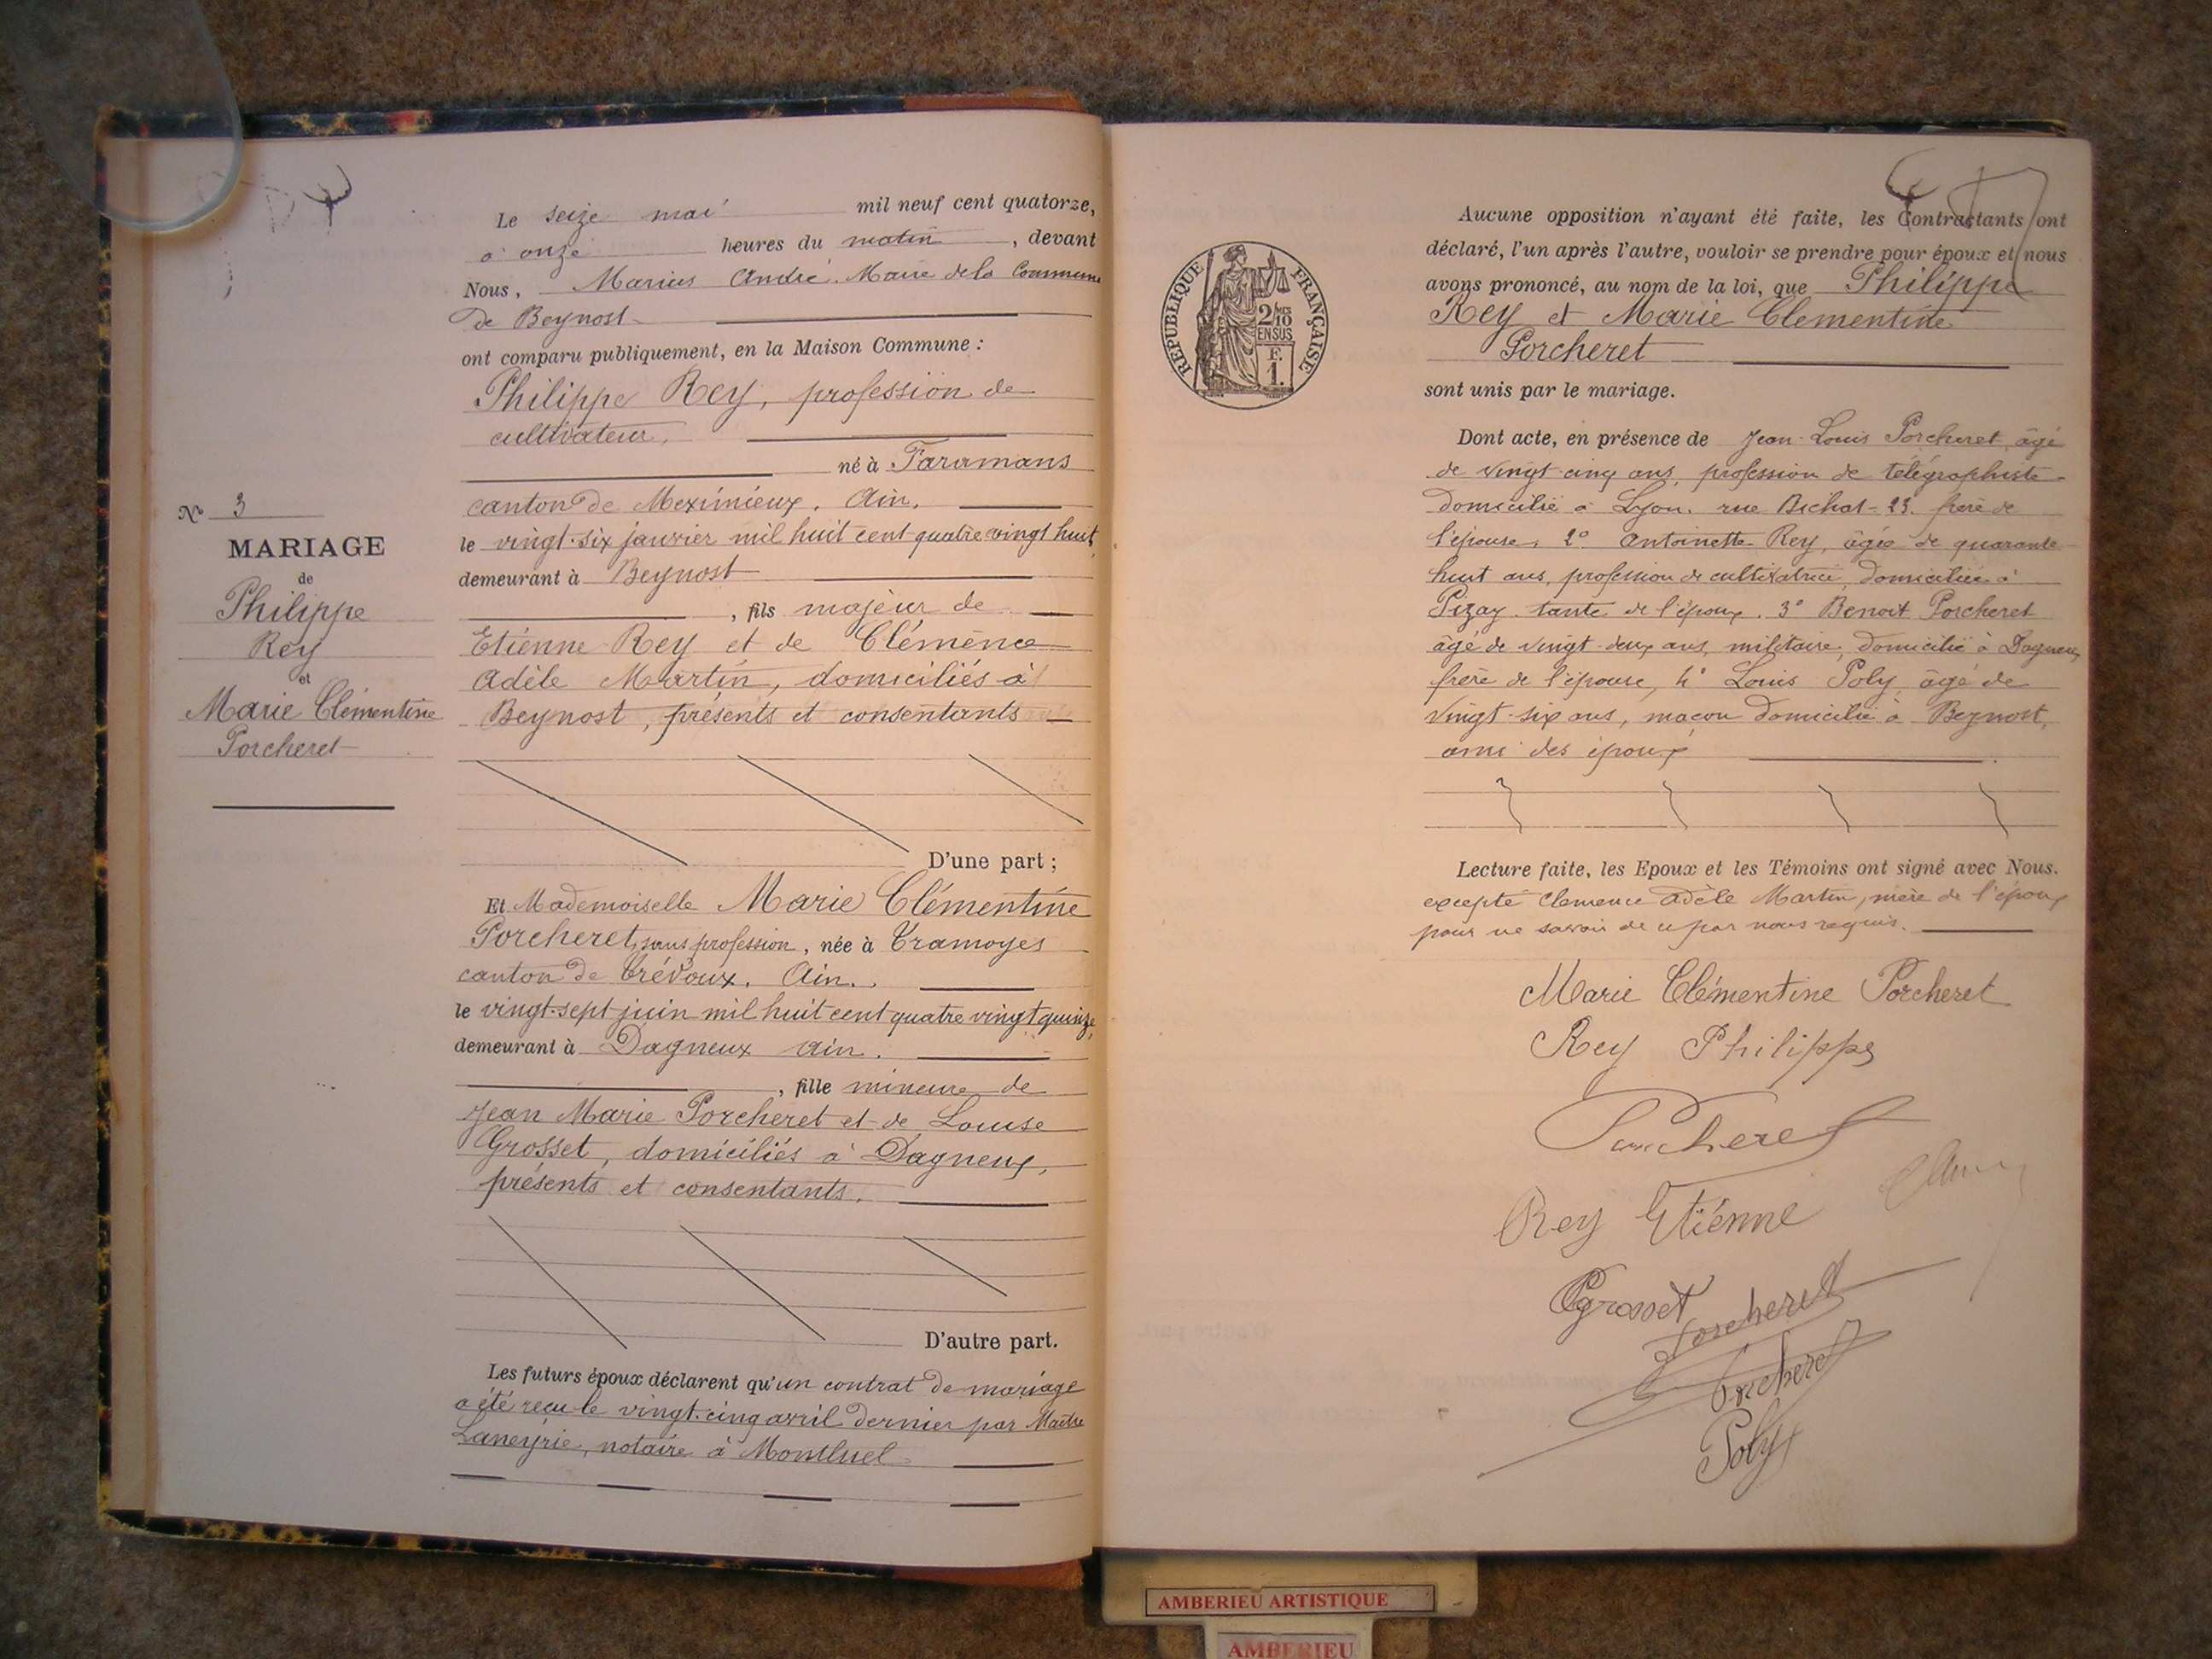 Le seize mai mil neuf cent quatorze,
à onze heures du matin, devant
Nous, Marius André. Maire de la Commune
de Beynost
ont comparu publiquement, en la Maison Commune :
Philippe Rey, profession de
cultivateur,
né à Faramans
canton de Meximieux. Ain.
le vingt-six janvier mil huit cent quatre vingt huit,
demeurant à Beynost
, fils majeur de
Etienne Rey et de Clémence
Adèle Martin, domiciliés à
Beynost, présents et consentants
D'une part ;
Et Mademoiselle Marie Clémentine
Porcheret, sans profession, née à Tramoyes
canton de Trévoux. Ain.
le vingt-sept juin mil huit cent quatre vingt quinze,
demeurant à Dagneux Ain.
, fille mineure de
Jean Marie Porcheret et de Louise
Grosset, domiciliés à Dagneux,
présents et consentants.
D'autre part.
Les futurs époux déclarent qu'un contrat de mariage
a été reçu le vingt-cinq avril dernier par Maître
Laneyrie, notaire à Montluel
No 3
MARIAGE
de
Philippe
Rey
et
Marie Clémentine
Porcheret
RÉPUBLIQUE FRANÇAISE
2/10
EN SUS
F.
1.
Aucune opposition n'ayant été faite, les Contractants ont
déclaré, l'un après l'autre, vouloir se prendre pour époux et nous
avons prononcé, au nom de la loi, que Philippe
Rey et Marie Clémentine
Porcheret
sont unis par le mariage.
Dont acte, en présence de Jean-Louis Porcheret, âgé
de vingt-cinq ans, profession de télégraphiste
domicilié à Lyon. rue Bichat-23. frère de
l'épouse, 2° Antoinette Rey, âgée de quarante
huit ans, profession de cultivatrice, domiciliée à
Pizay. tante de l'époux. 3° Benoit Porcheret
âgé de vingt-deux ans, militaire, domicilié à Dagneux
frère de l'épouse, 4° Louis Poly, âgé de
vingt-six ans, maçon domicilié à Beynost,
ami des époux
Lecture faite, les Epoux et les Témoins ont signé avec Nous.
excepté Clémence Adèle Martin, mère de l'époux
pour ne savoir de ce par nous requis.
Marie Clémentine Porcheret
Rey Philippe
Porcheret
Rey Etiénne
Grosset
Porcheret
Porcheret
Poly
AMBERIEU ARTISTIQUE
AMBERIEU